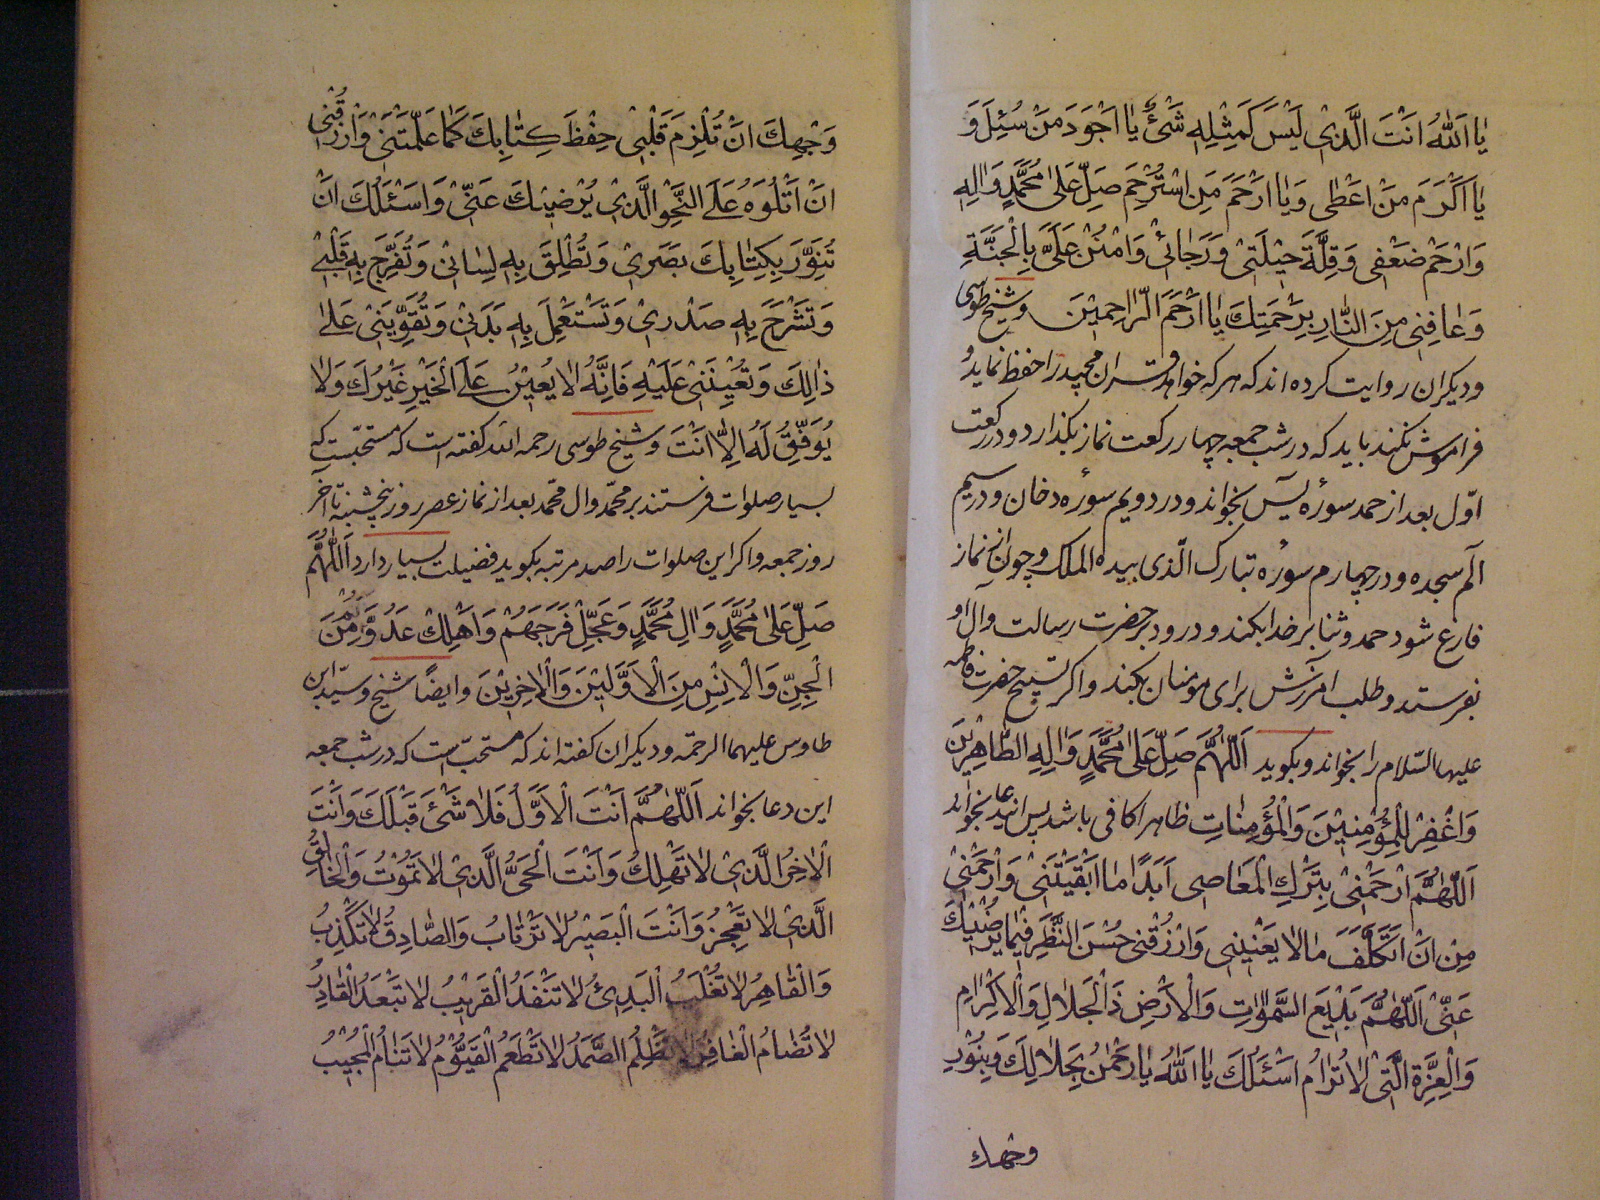 يَا اَللّٰهُ اَنْتَ الَّذِي لَيْسَ كَمِثْلِهِ شَيْءٌ يَا اَجْوَدَ مَنْ سُئِلَ وَ
يَا اَكْرَمَ مَنْ اَعْطٰى وَيَا اَرْحَمَ مَنِ اسْتُرْحِمَ صَلِّ عَلٰى مُحَمَّدٍ وَاٰلِهِ
وَارْحَمْ ضَعْفِى وَقِلَّةَ حِيْلَتِىْ وَرَجَائِىْ وَامْنُنْ عَلَىَّ بِالْجَنَّةِ
وَعَافِنِى مِنَ النَّارِ بِرَحْمَتِكَ يَا اَرْحَمَ الرَّاحِمِيْنَ وشيخ طوسى
وديكران روايت كرده اند كه هر كه خواهد قرآن مجيد را حفظ نمايد و
فراموش نكند بايد كه در شب جمعه چهار ركعت نماز بكذارد و در ركعت
اوّل بعد از حمد سورۀ يٓس بخواند و در دويم سورۀ دخان و در سيم
الٓم سجده و در چهارم سورۀ تبارك الّذى بيده الملك و چون از نماز
فارغ شود حمد و ثنا بر خدا بكند و درود بر حضرت رسالت و آل او
بفرستد و طلب آمرزش براى مؤمنان بكند و اكر تسبيح حضرت فاطمه
عليها السّلام را بخواند و بكويد اَللّٰهُمَّ صَلِّ عَلٰى مُحَمَّدٍ وَاٰلِهِ الطَّاهِرِيْنَ
وَاغْفِرْ لِلْمُؤْمِنِيْنَ وَالْمُؤْمِنَاتِ ظاهرا كافى باشد پس اين دعا بخواند
اَللّٰهُمَّ ارْحَمْنِىْ بِتَرْكِ الْمَعَاصِى اَبَدًا مَا اَبْقَيْتَنِىْ وَارْحَمْنِىْ
مِنْ اَنْ اَتَكَلَّفَ مَا لَا يَعْنِيْنِى وَارْزُقْنِى حُسْنَ النَّظَرِ فِيْمَا يُرْضِيْكَ
عَنِّىْ اَللّٰهُمَّ بَدِيْعَ السَّمٰوَاتِ وَالْاَرْضِ ذَا الْجَلَالِ وَالْاِكْرَامِ
وَالْعِزَّةِ الَّتِىْ لَا تُرَامُ اَسْئَلُكَ يَا اَللّٰهُ يَا رَحْمٰنُ بِجَلَالِكَ وَبِنُوْرِ
وجهك
وَجْهِكَ اَنْ تُلْزِمَ قَلْبِىْ حِفْظَ كِتَابِكَ كَمَا عَلَّمْتَنِىْ وَارْزُقْنِى
اَنْ اَتْلُوَهُ عَلَى النَّحْوِ الَّذِىْ يُرْضِيْكَ عَنِّىْ وَاَسْئَلُكَ اَنْ
تُنَوِّرَ بِكِتَابِكَ بَصَرِىْ وَتُطْلِقَ بِهِ لِسَانِىْ وَتُفَرِّجَ بِهِ قَلْبِىْ
وَتَشْرَحَ بِهِ صَدْرِىْ وَتَسْتَعْمِلَ بِهِ بَدَنِىْ وَتُقَوِّيَنِىْ عَلٰى
ذَالِكَ وَتُعِيْنَنِىْ عَلَيْهِ فَاِنَّهُ لَا يُعِيْنُ عَلَى الْخَيْرِ غَيْرُكَ وَلَا
يُوَفِّقُ لَهُ اِلَّا اَنْتَ وشيخ طوسى رحمه الله كفته است كه مستحبّست كه
بسيار صلوات فرستند بر محمّد وال محمّد بعد از نماز عصر روز پنجشنبه تا آخر
روز جمعه واكر اين صلوات را صد مرتبه بكويد فضيلت بسيار دارد اَللّٰهُمَّ
صَلِّ عَلٰى مُحَمَّدٍ وَاٰلِ مُحَمَّدٍ وَعَجِّلْ فَرَجَهُمْ وَاَهْلِكْ عَدُوَّهُمْ مِنَ
الْجِنِّ وَالْاِنْسِ مِنَ الْاَوَّلِيْنَ وَالْاٰخِرِيْنَ وايضًا شيخ وسيّد ابن
طاوس عليهما الرحمّه وديكران كفته اند كه مستحبّ است كه در شب جمعه
اين دعا بخواند اَللّٰهُمَّ اَنْتَ الْاَوَّلُ فَلَا شَىْءَ قَبْلَكَ وَاَنْتَ
الْاٰخِرُ الَّذِىْ لَا تَهْلِكُ وَاَنْتَ الْحَىُّ الَّذِى لَا تَمُوْتُ وَالْخَالِقُ
الَّذِىْ لَا تَعْجِزُ وَاَنْتَ الْبَصِيْرُ لَا تَرْتَابُ وَالصَّادِقُ لَا تَكْذِبُ
وَالْقَاهِرُ لَا تُغْلَبُ الْبَدِىْءُ لَا تَنْفَدُ الْقَرِيْبُ لَا تَبْعَدُ الْقَادِرُ
لَا تُضَامُ الْغَافِرُ لَا تَظْلِمُ الصَّمَدُ لَا تَطْعَمُ الْقَيُّوْمُ لَا تَنَامُ الْمُجِيْبُ